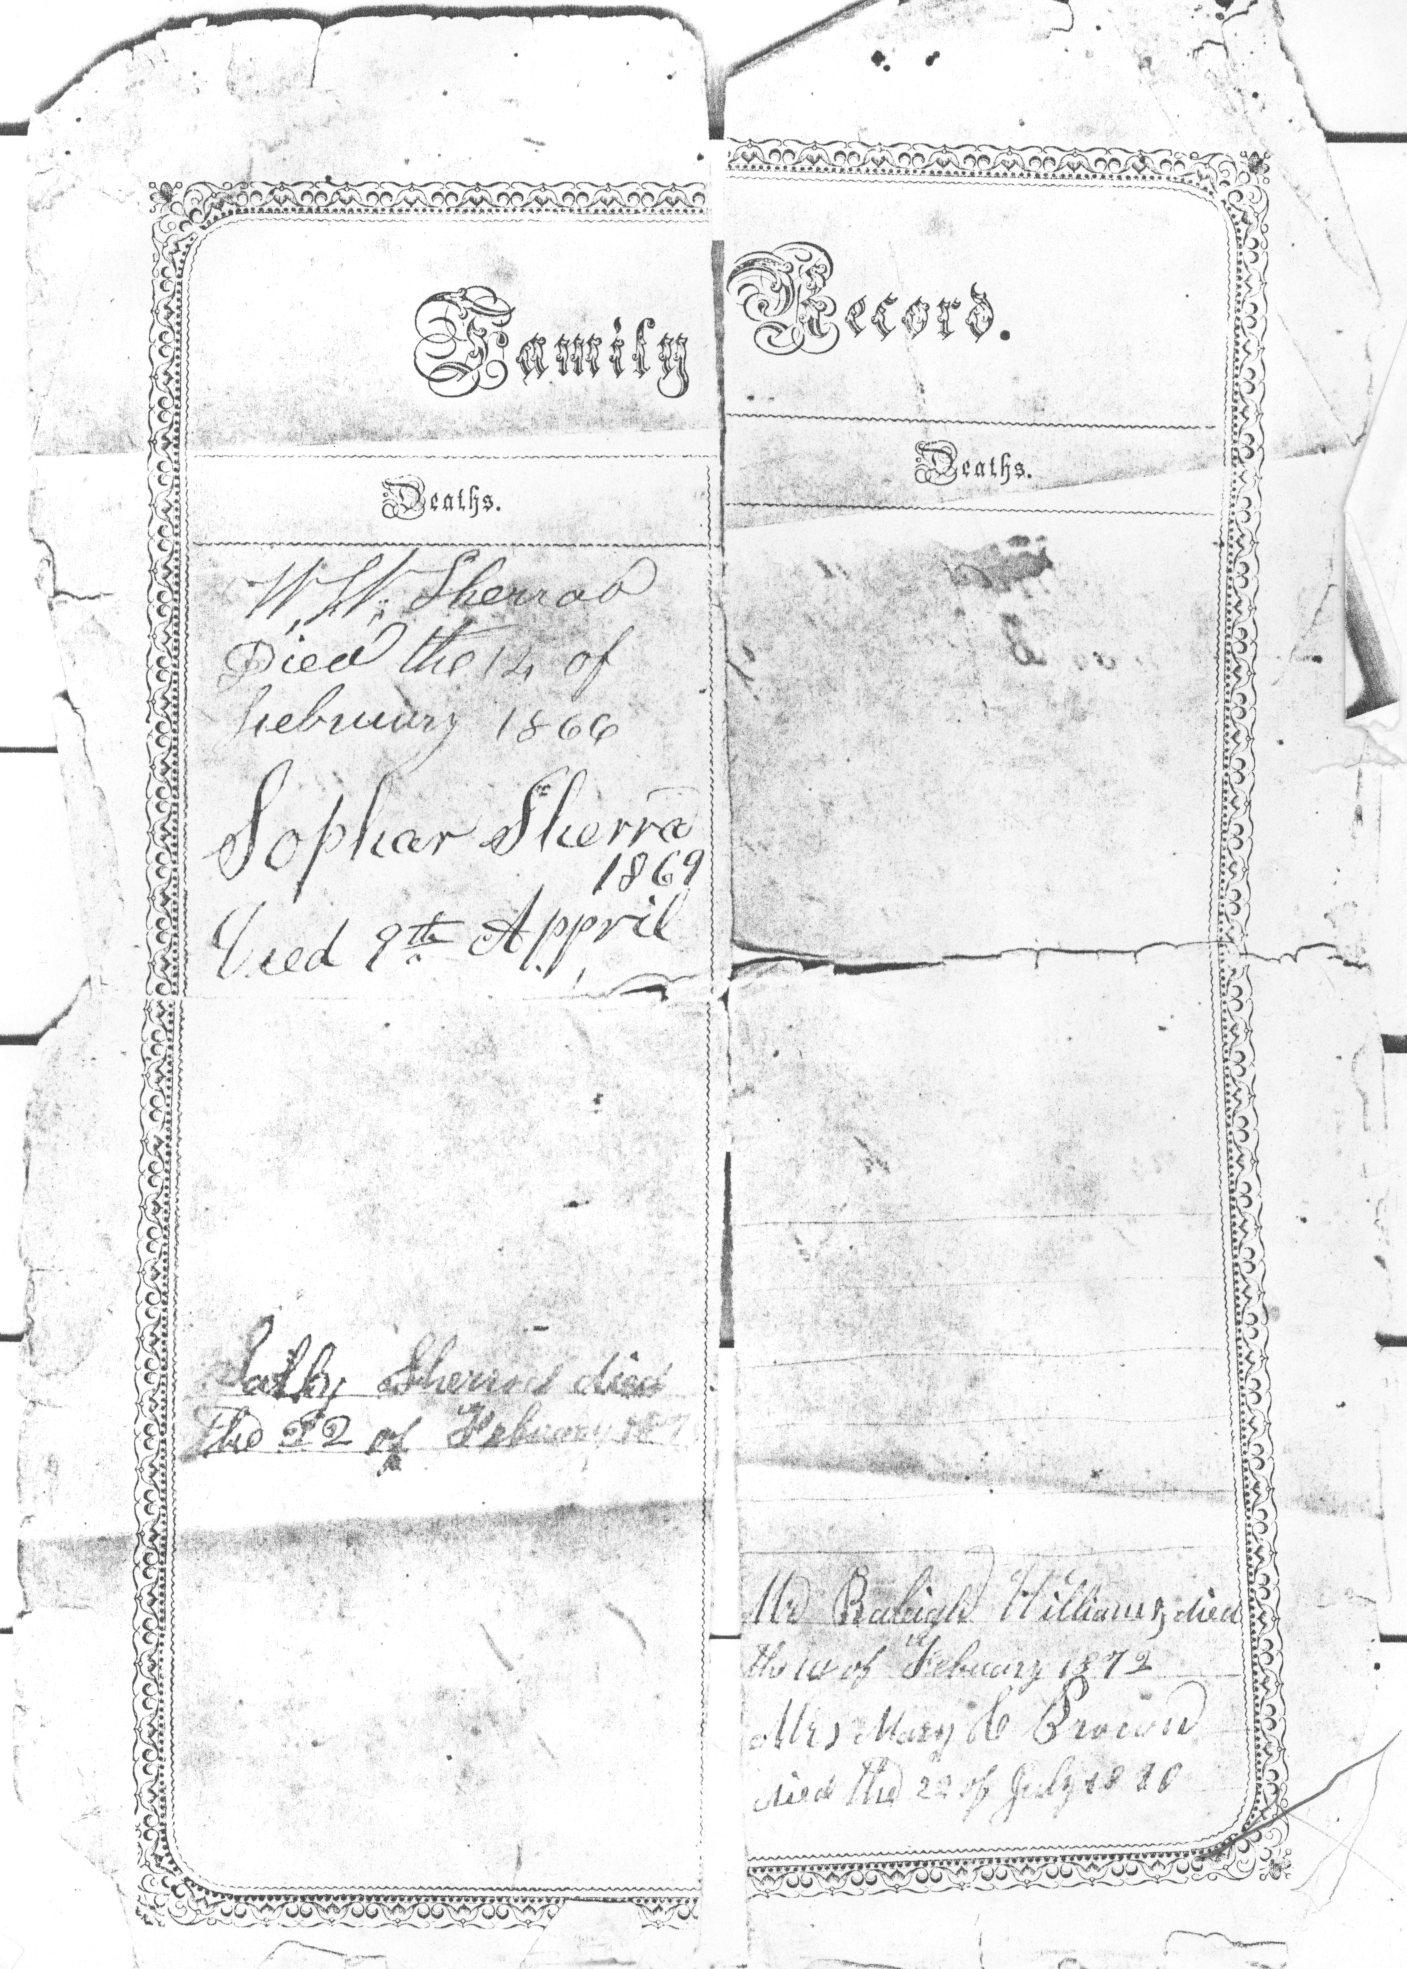 Family Record.
Deaths.
W. W. Sherrod
Died the 14 of
February 1866
Sophar Sherrod
1869
Died 9th Appril
Sherrod died
the 22 of February 187
Deaths.
Mr Raleigh Williams, died
the of February 1872
Mrs Mary C Brown
died the 22 of July